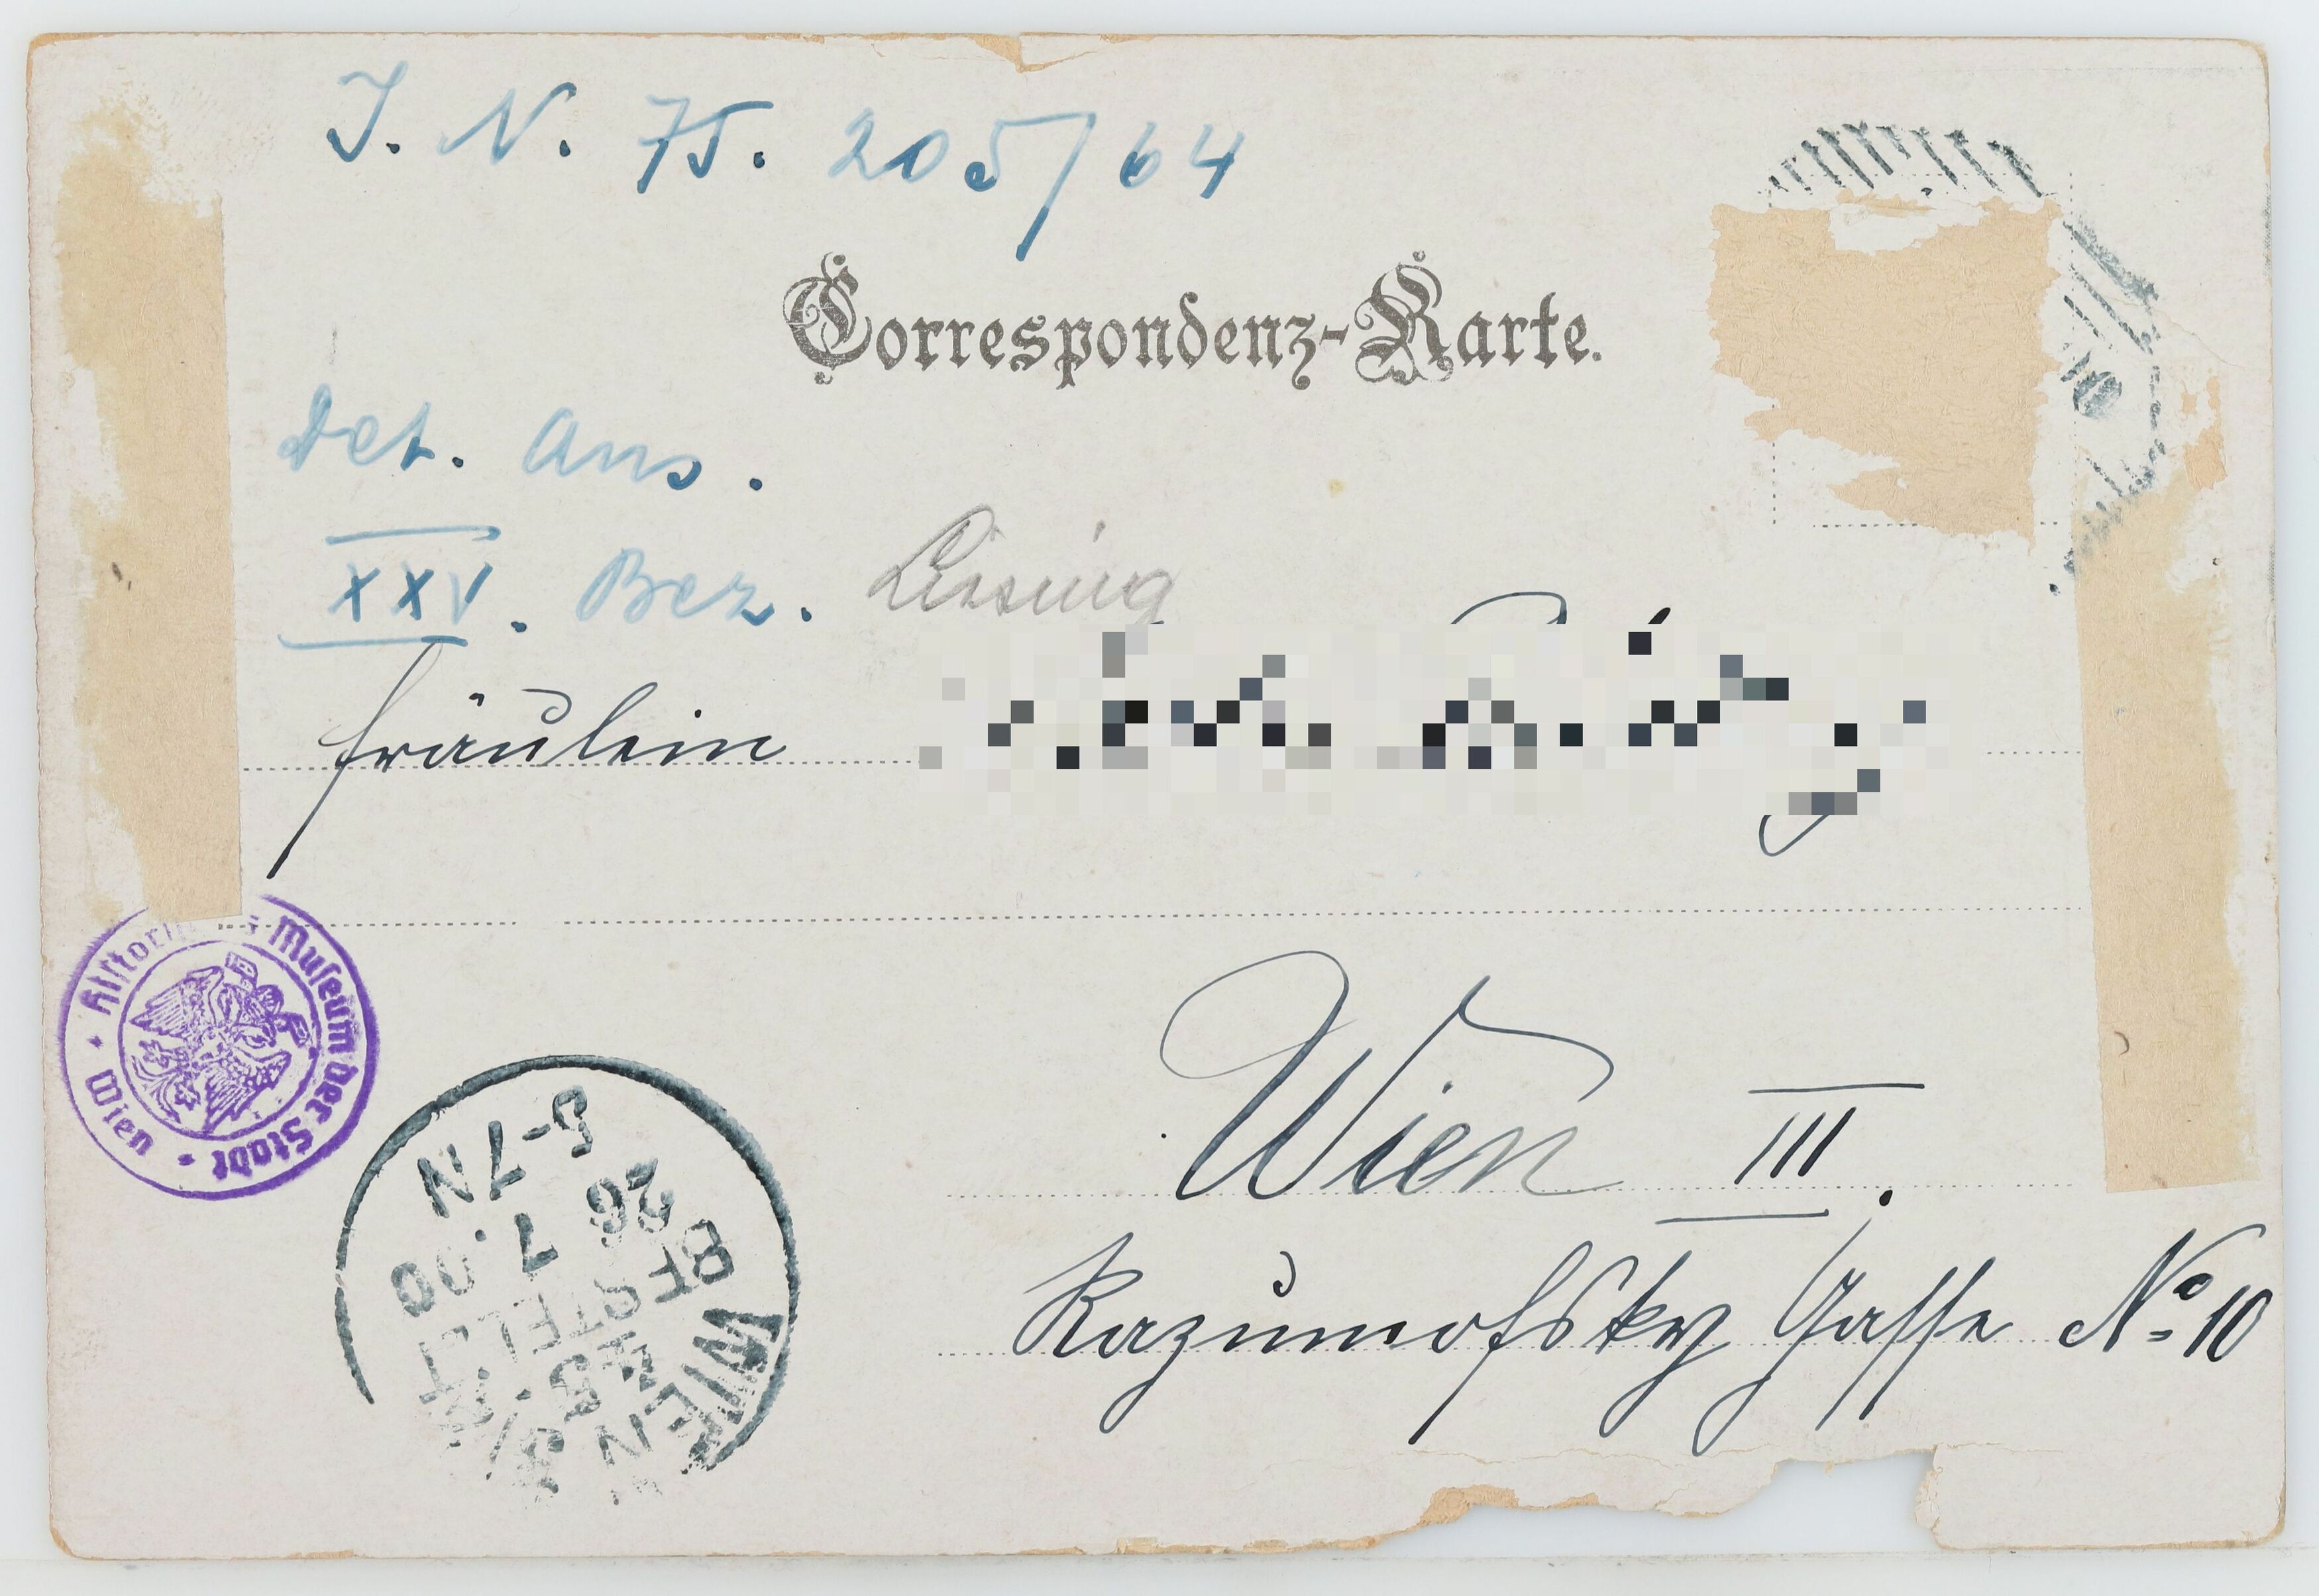 J. N. 75. 205/64
Correspondenz-Karte.
Det. Ans.
XXV. Bez. Liesing
Fräulein
Historisches Museum der Stadt Wien
Wien III.
Razumofsky Gasse № 10
5-7N
26 7 00
BESTELLT
WIEN